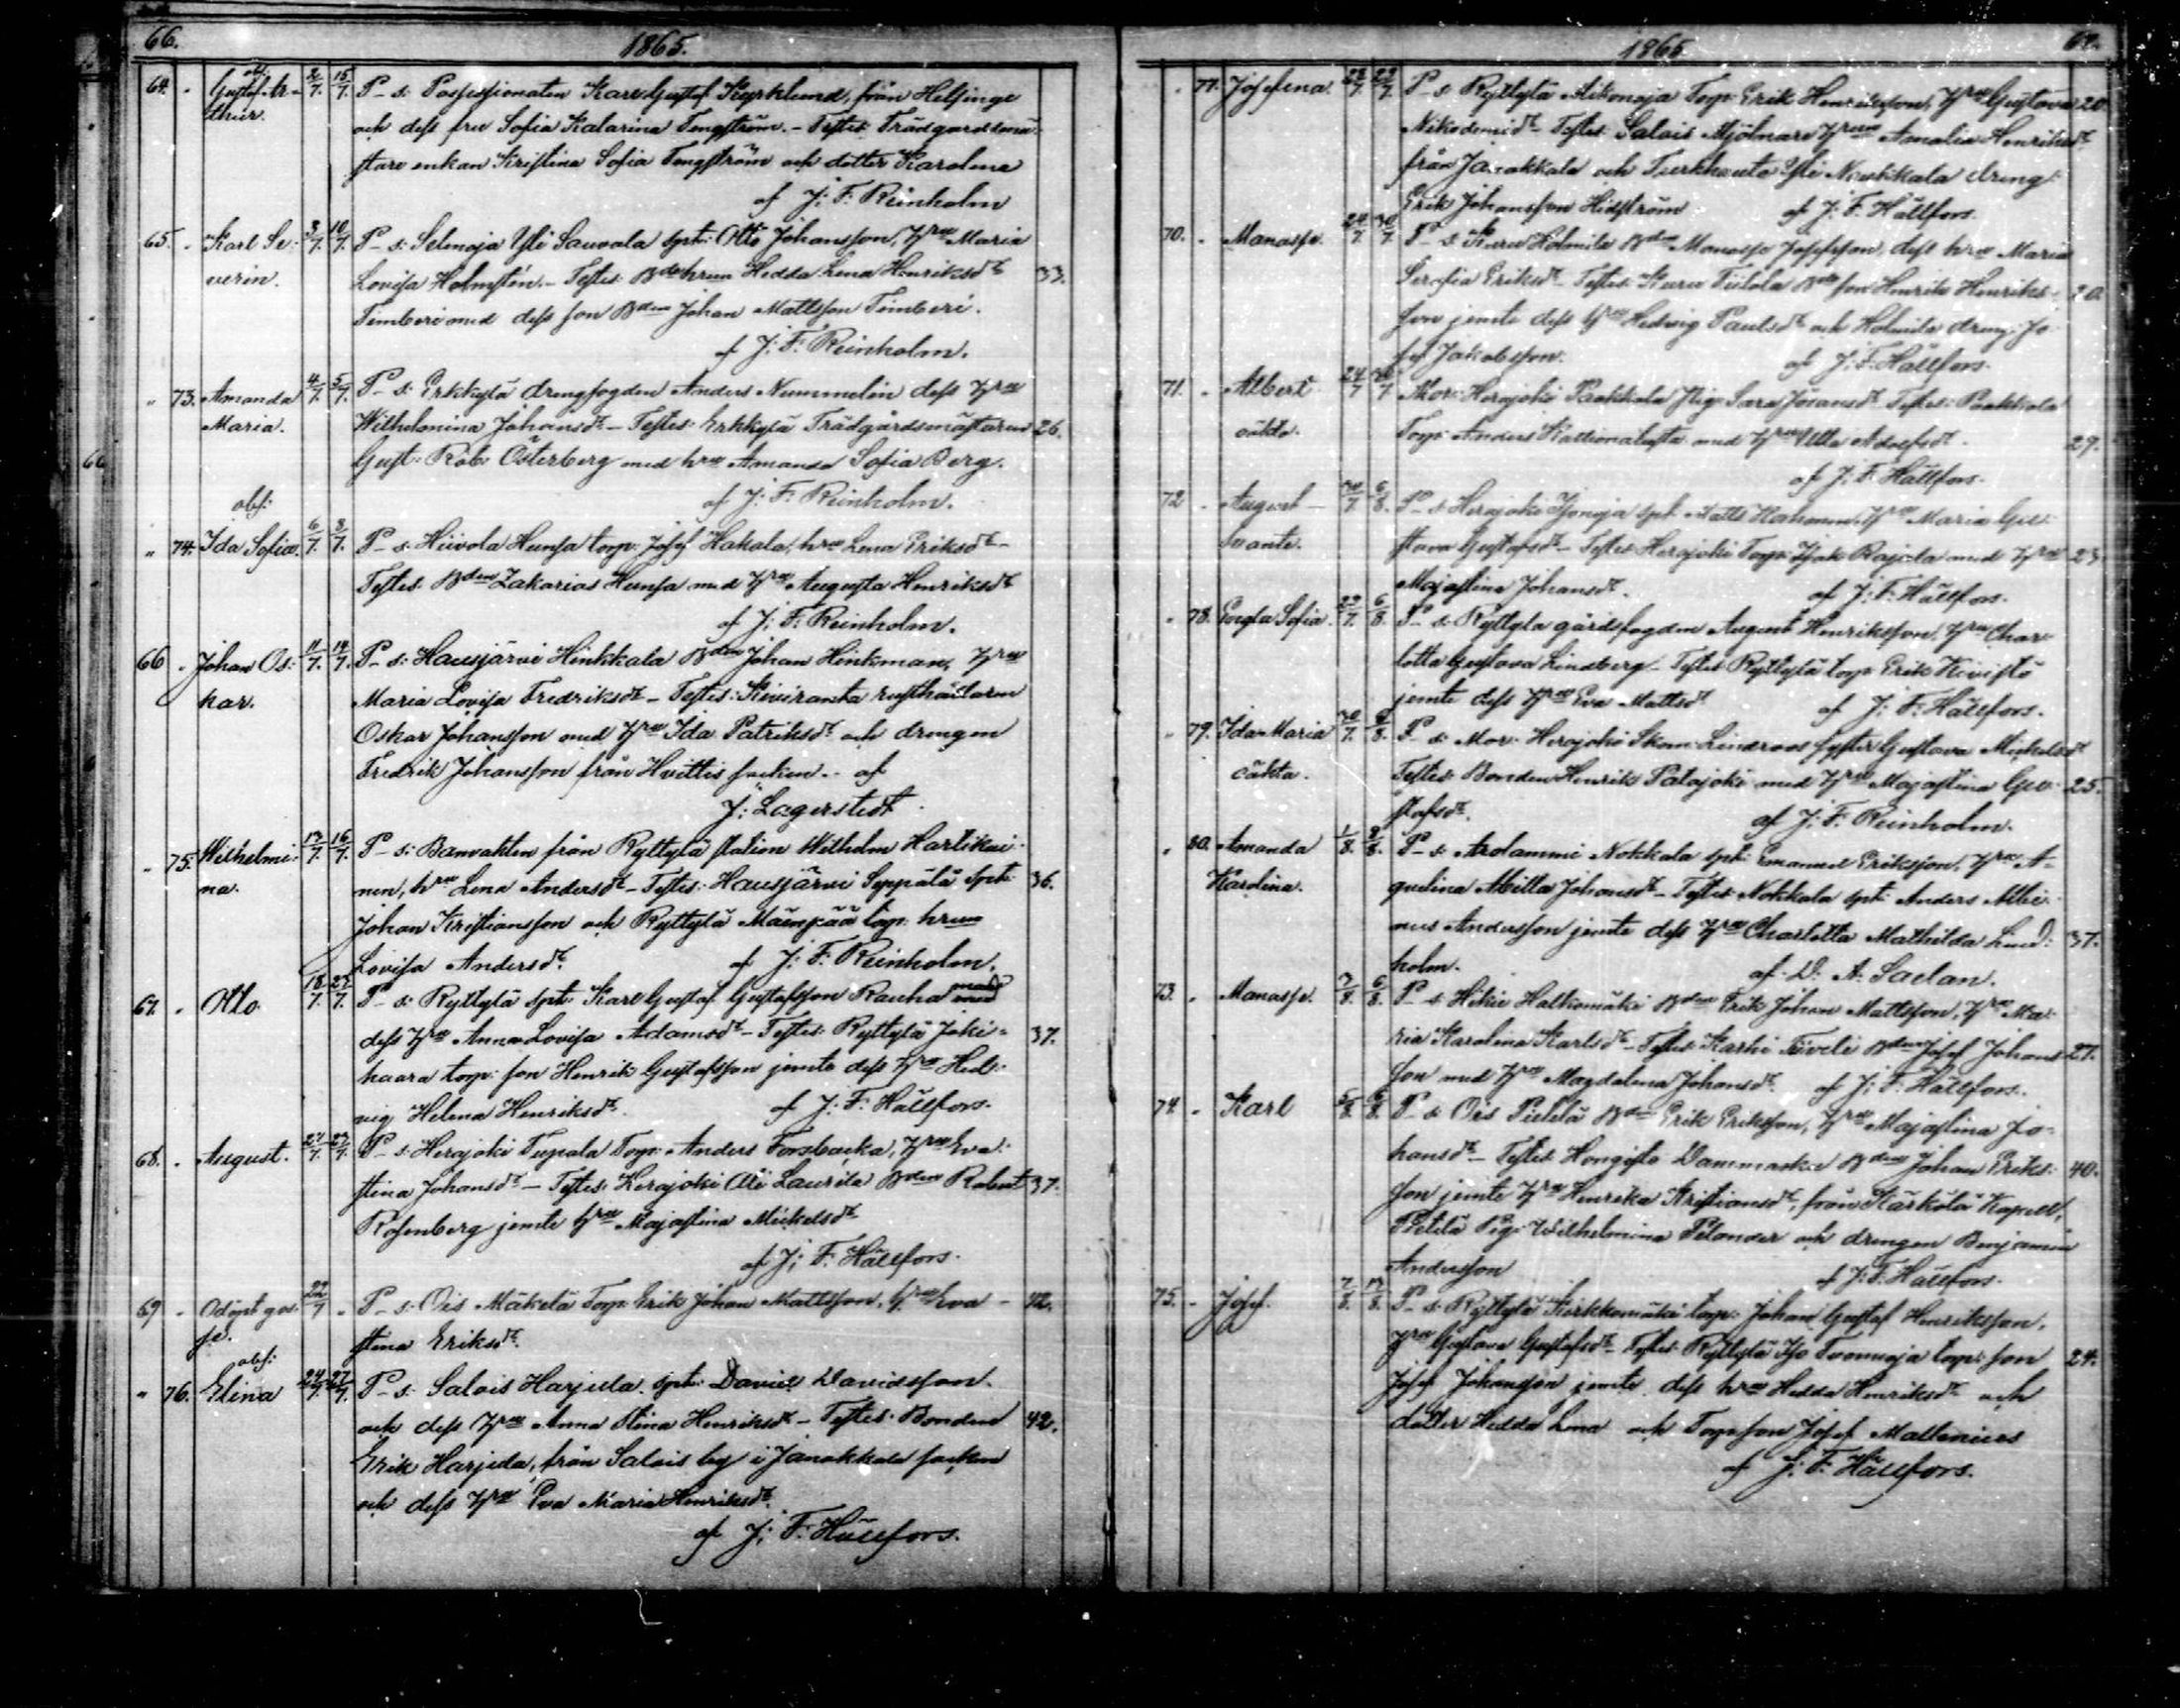 66. 1865.
64. obs: Gustaf Ar- 2/7. 15/7. P. s: Possessionaten Karl Gustaf Kyrklund, från Helsinge
thur. och dess fru Sofia Katarina Tengström. - Testes: Trädgårdsmä-
stare enkan Kristina Sofia Tengström och dotter Karolina
af J: F: Reinholm
65. Karl Se- 3/7. 10/7. P. s: Selmoja Yli Sauvala spt: Otto Johansson, Hru Maria
verin. Lovisa Holmstén. - Testes: Bdehrun Hedda Lena Henriksdr 33.
Timberi med dess son Bden Johan Mattsson Timberi.
af J: F: Reinholm.
" 73. Amanda 4/7. 5/7. P. s: Erkkylä drengfogden Anders Nummelin dess Hru
Maria. Wilhelmina Johansdr - Testes: Erkkylä Trädgårdsmästaren 26.
Gust: Rob: Österberg med hru Amanda Sofia Berg.
af J: F: Reinholm.
obs:
" 74. Ida Sofia. 6/7. 8/7. P. s: Hiivola Hunsa torp: Josef Hakala, hru Lena Eriksdr -
Testes: Bden Zakarias Hunsa med Hru Augusta Henriksdr
af J: F: Reinholm.
66. Johan Os- 11/7. 14/7. P. s: Hausjärvi Hinkkala Bden Johan Hinkman, Hru
kar. Maria Lovisa Fredriksdr - Testes: Kiviranta rusthållaren
Oskar Johansson med Hru Ida Patriksdr och drengen
Fredrik Johansson från Hvittis socken. af
J: Lagerstedt
" 75. Wilhelmi- 13/7. 16/7. P. s: Banvakten från Ryttylä station Wilhelm Hartikai-
na. nen, hru Lena Andersdr - Testes: Hausjärvi Seppälä Spt: 36.
Johan Kristiansson och Ryttylä Mäenpää torp: hrun
Lovisa Andersdr. af J: F: Reinholm.
67. Otto. 18/7. 23/7. P. s: Ryttylä spt: Karl Gustaf Gustafsson Rauha med
dess Hru Anna Lovisa Adamsdr - Testes: Ryttylä Joki- 37.
haara torp: son Henrik Gustafsson jemte dess Hru Hed-
vig Helena Henriksdr. af J: F: Hällfors.
68. August. 21/7. 23/7. P. s: Herajoki Tupala Torp: Anders Forsbacka, Hru Eva
stina Johansdr - Testes: Herajoki Ali Laurila Bden Robert 37.
Rosenberg jemte hru Majastina Mickelsdr
af J: F: Hällfors.
69. Odöpt gos- 22/7 P. s: Ois Mäkelä Torp: Erik Johan Mattsson, Hru Eva- 42.
se. stina Eriksdr.
obs:
" 76. Elina 24/7. 27/7. P. s: Salois Harjula spt: David Davidsson
och dess Hru Anna Stina Henriksdr - Testes: Bonden 42.
Erik Harjula, från Salois by i Janakkala socken
och dess Hru Eva Maria Henriksdr.
af J: F: Hällfors.
1865. 67.
77. Josefina. P. s: Ryttylä Torp: Erik Henriksson, Hru Gustava 20
Nikodemidr - Testes: Salois Mjölnare Hrun Amalia Henriksdr
från Janakkala och Turkhauta Yli Noukkala dreng
Erik Johansson Hidström af J: F: Hällfors.
70. Manasse. 24/7 30/7 P. s: Kara Holmila Bden Manasse Josefsson, dess hru Maria
Serafia Eriksdr - Testes: Kara Tiilola Bde son Henrik Henriks- 20.
son jemte dess Hru Hedvig Paulsdr och Holmila dreng: Jo-
sef Jakobsson. af J: F: Hällfors.
71. Albert 24/7 30/7 Mor: Herajoki Paakkola Pig: Sara Johansdr Testes: Paakkola
oäkta. Torp: Anders med Hru Ulla Adolfsdr. 29.
af J: F: Hällfors.
72. August 30/7. 6/8. P. s: Herajoki spt: Matts Hru Maria Gu-
Svante. stava Gustafsdr - Testes: Herajoki Torp: Isak Rajala med Hru 23.
Majastina Johansdr. af J: F: Hällfors.
" 78. Engla Sofia. 29/7. 6/8. P. s: Ryttylä gårdsfogden August Henriksson, Hru Char-
lotta Gustava Lindberg - Testes: Ryttylä torp: Erik Kivistö
jemte dess Hru Eva Mattsdr af J: F: Hällfors.
" 79. Ida Maria 30/7. P. s: Mor: Herajoki Skom: Lindroos syster Gustava Mickelsdr
oäkta. Testes: Bonden Henrik Palojoki med Hru Majastina Gu- 25.
stafsdr. af J: F: Reinholm.
" 80. Amanda 1/8. P. s: Arolammi Nokkala spt: Emanuel Eriksson, Hru A-
Karolina. qvelina Johansdr - Testes: Nokkala spt: Anders Albi-
nus Andersson jemte dess Hru Charlotta Mathilda Lind- 37.
holm. af D. A. Saelan.
73. Manasse. 3/8. 6/8. P. s: Hikie Halkomäki Bden Erik Johan Mattsson, Hru Ma-
ria Karolina Karlsdr - Testes: Karhi Bden Josef Johans- 27.
son med Hru Magdalena Johansdr. af J: F: Hällfors.
74. Karl 5/8. 6/8. P. s: Ois Pietilä Bden Erik Eriksson, Hru Majastina Jo-
hansdr - Testes: Hongisto Bden Johan Eriks- 40.
son jemte Hru Henrika Kristiansdr, från Kärkölä Kapell,
Pietilä Pig: Wilhelmina Pelander och drengen Benjamin
Andersson af J: F: Hällfors.
75. Josef. 7/8. 13/8. P. s: Ryttylä Kirkkomäki torp: Johan Gustaf Henriksson,
Hru Gustava Gustafsdr - Testes: Ryttylä Iso torp: son 24.
Josef Johansson jemte dess hru Hedda Henriksdr och
dotter Hedda Lena och Torp: son Josef
af J: F: Hällfors.